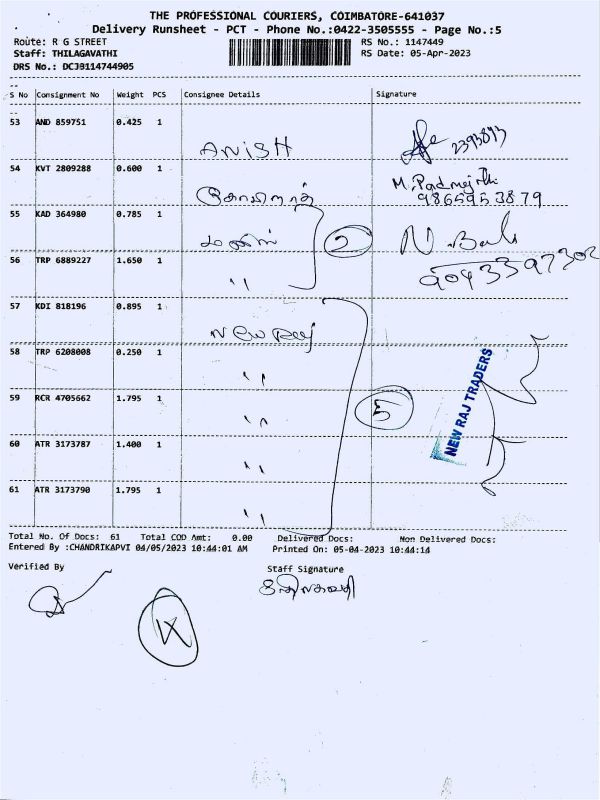 THE PROFESSIONAL COURIERS, COIMBATORE-641037
Delivery Runsheet - PCT - Phone No.:0422-3505555 - Page No.:5
Route: R G STREET RS No.: 1147449
Staff: THILAGAVATHI RS Date: 05-Apr-2023
DRS No.: DCJB114744905
--
S No Consignment No Weight PCS Consignee Details Signature
--
53 AND 859751 0.425 1 ANISH 2393893
54 KVT 2809288 0.600 1 கோபிநாத் M. 9865953879
55 KAD 364980 0.785 1 2 N
56 TRP 6889227 1.650 1 " 9043397302
57 KDI 818196 0.895 1 New Raj
58 TRP 6208008 0.250 1 " NEW RAJ TRADERS
59 RCR 4705662 1.795 1 " 5
60 ATR 3173787 1.400 1 "
61 ATR 3173790 1.795 1 "
Total No. Of Docs: 61 Total COD Amt: 0.00 Delivered Docs: Non Delivered Docs:
Entered By :CHANDRIKAPVI 04/05/2023 10:44:01 AM Printed On: 05-04-2023 10:44:14
Verified By Staff Signature
திலகவதி
IX